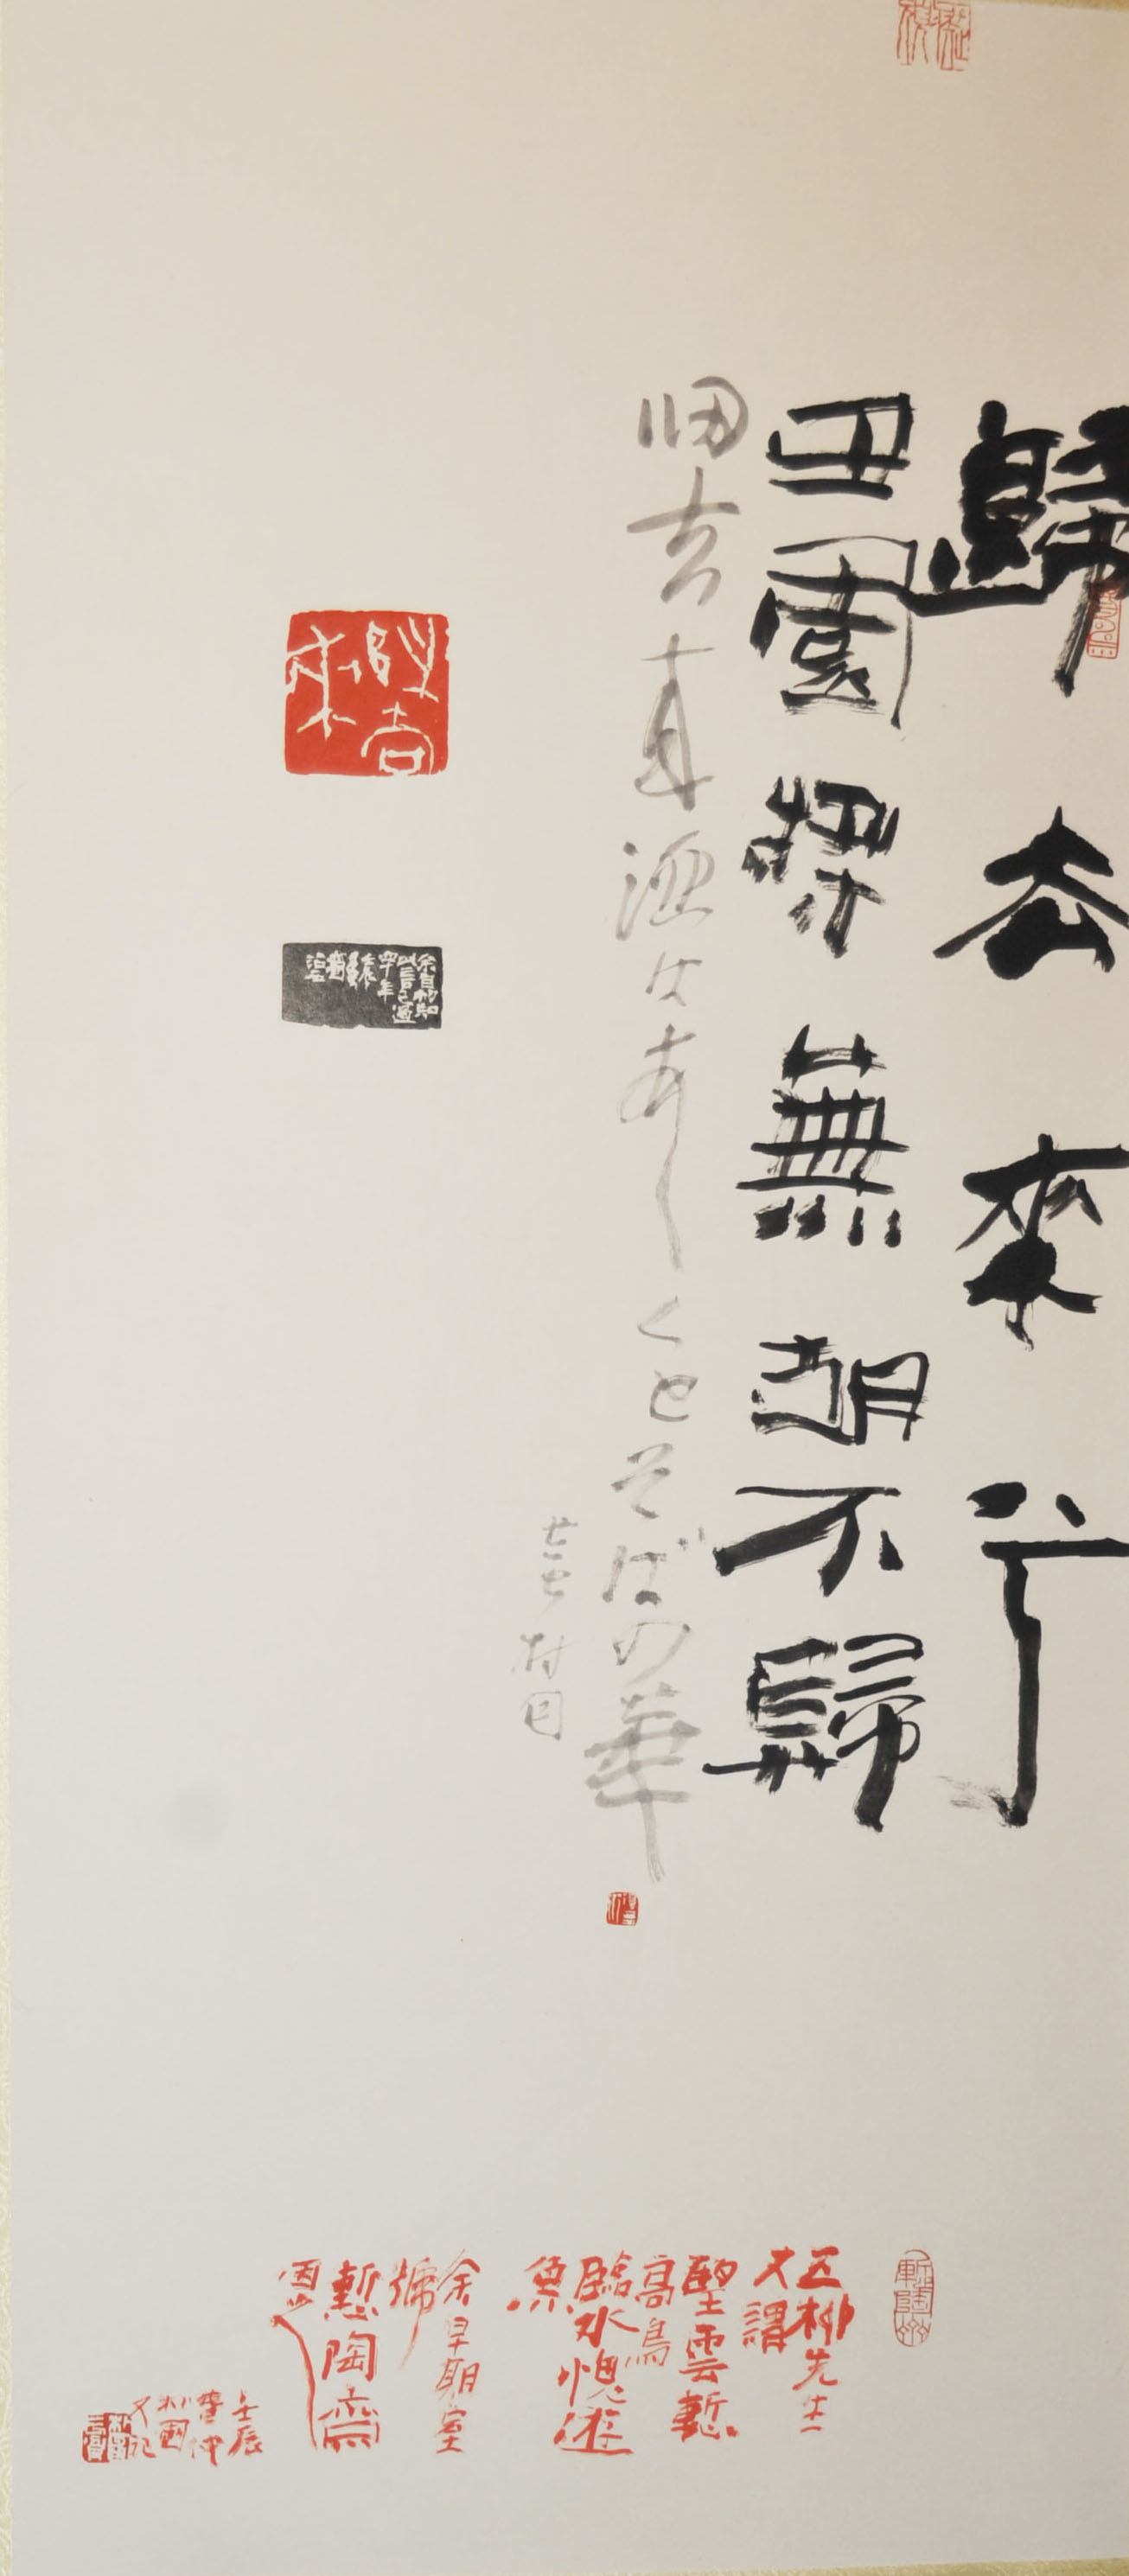 歸去來兮
田園將蕪胡不歸
帰去来酒はあしくとそばの華
蕪村句
歸去來
五柳先生
又謂
望雲慙
高鳥
臨水愧遊
魚
余早期室
號
慙陶齋
壬辰
又記